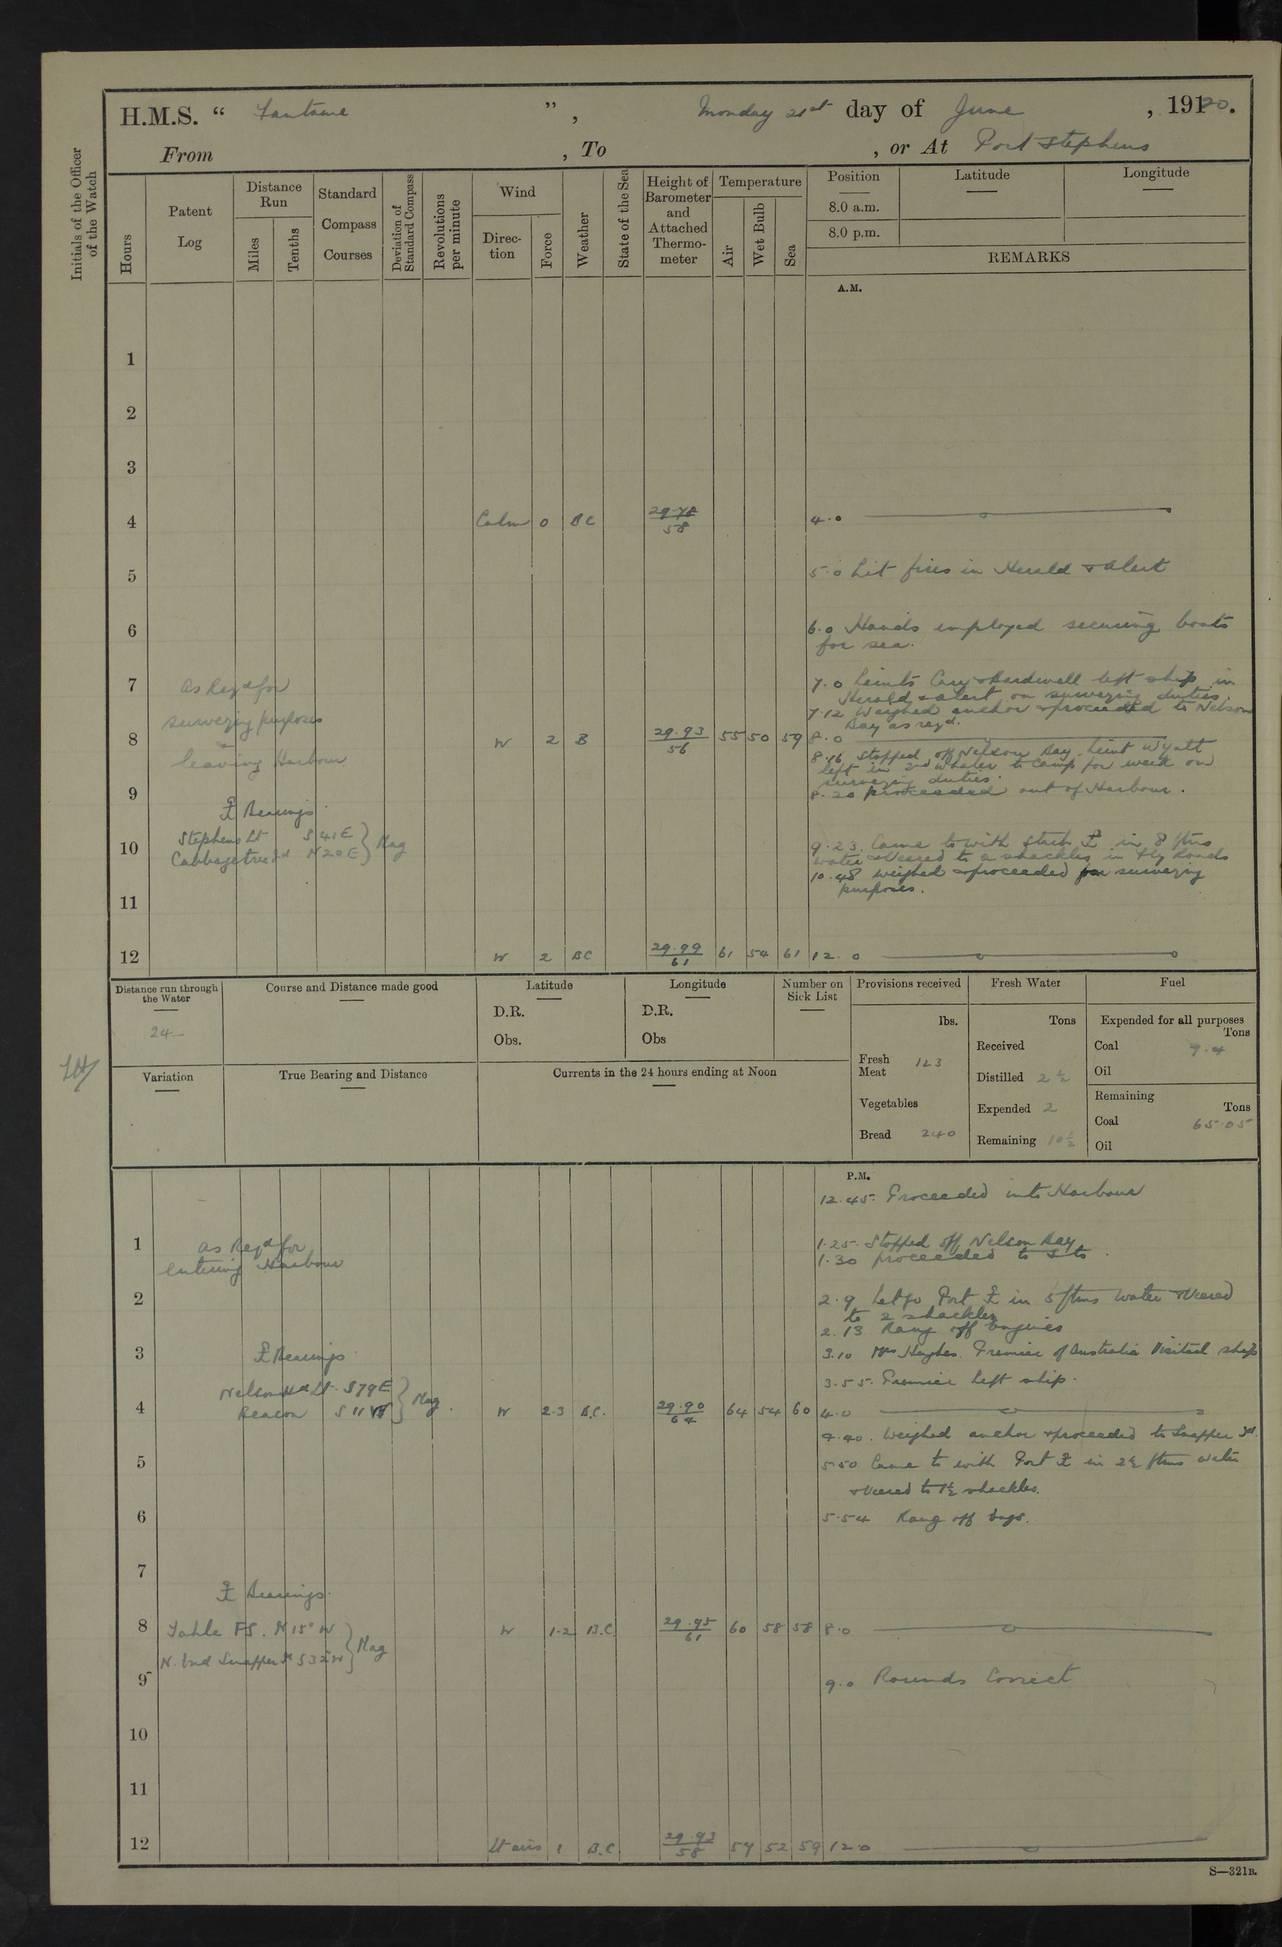 H.M.S. “ Fantome ”, Monday 21st day of June , 1920.
From , To , or At Port Stephens
Initials of the Officer of the Watch
Hours
Patent Log
Distance Run
Miles
Tenths
Standard Compass Courses
Deviation of Standard Compass
Revolutions per minute
Wind
Direction
Force
Weather
State of the Sea
Height of Barometer and Attached Thermometer
Temperature
Air
Wet Bulb
Sea
Position
Latitude
Longitude
8.0 a.m.
8.0 p.m.
REMARKS
A.M.
1
2
3
4 Calm 0 BC 29.78 58 4.0
5 5.0 Lit fires in Herald & Alert
6 6.0 Hands employed securing boats
for sea.
7 As Reqd for 7.0 Lieuts & Bardwell left ship in
Herald & Alert on surveying duties.
surveying purposes 7.12 Weighed anchor & proceeded to Nelson
Bay as reqd.
8 W 2 B 29.93 56 55 50 59 8.0
leaving Harbour 8.16 Stopped off Nelson Bay. Lieut Wyatt
left in 2nd Whaler to camp for week on
surveying duties.
9 8.20 proceeded out of Harbour.
⚓ Bearings
Stephens Lt S 41 E } Mag
10 Cabbagetree Id N 20 E 9.23. Came to with Starb ⚓ in 8 fms
water & Veered to 2 shackles in Fly Roads
10.48 Weighed & proceeded for surveying
11 purposes.
12 W 2 BC 29.99 61 61 54 61 12.0
Distance run through the Water
24
Course and Distance made good
Latitude
D.R.
Obs.
Longitude
D.R.
Obs
Number on Sick List
Provisions received
lbs.
Fresh Meat 123
Vegetables
Bread 240
Fresh Water
Tons
Received
Distilled 2½
Expended 2
Remaining 10½
Fuel
Expended for all purposes
Tons
Coal 9.4
Oil
Remaining
Tons
Coal 65.05
Oil
Variation
True Bearing and Distance
Currents in the 24 hours ending at Noon
P.M.
12.45. Proceeded into Harbour
1 As Reqd for 1.25. Stopped off Nelson Bay
entering Harbour 1.30 proceeded to
2 2.9 Let go Port ⚓ in 5 fms water & Veered
to 2 shackles
2.13 Rang off Engines
3 ⚓ Bearings 3.10 Mr Hughes. Premier of Australia Visited ship
Nelson Hd Lt. S 79 E } Mag. 3.55. Premier left ship.
4 Beacon S 11 W W 2.3 B.C. 29.90 64 64 54 60 4.0
4.40. Weighed anchor & proceeded to Snapper Id.
5 5.50 Came to with Port ⚓ in 2½ fms water
& Veered to 1½ shackles.
6 5.54 Rang off Engs.
7
⚓ Bearings.
8 Tahlee FS. N 15° W } Mag W 1.2 B.C. 29.95 61 60 58 58 8.0
N. End Snapper Id S 32° W
9 9.0 Rounds Correct
10
11
12 Lt airs 1 B.C. 29.93 58 57 52 59 12.0
S—321B.